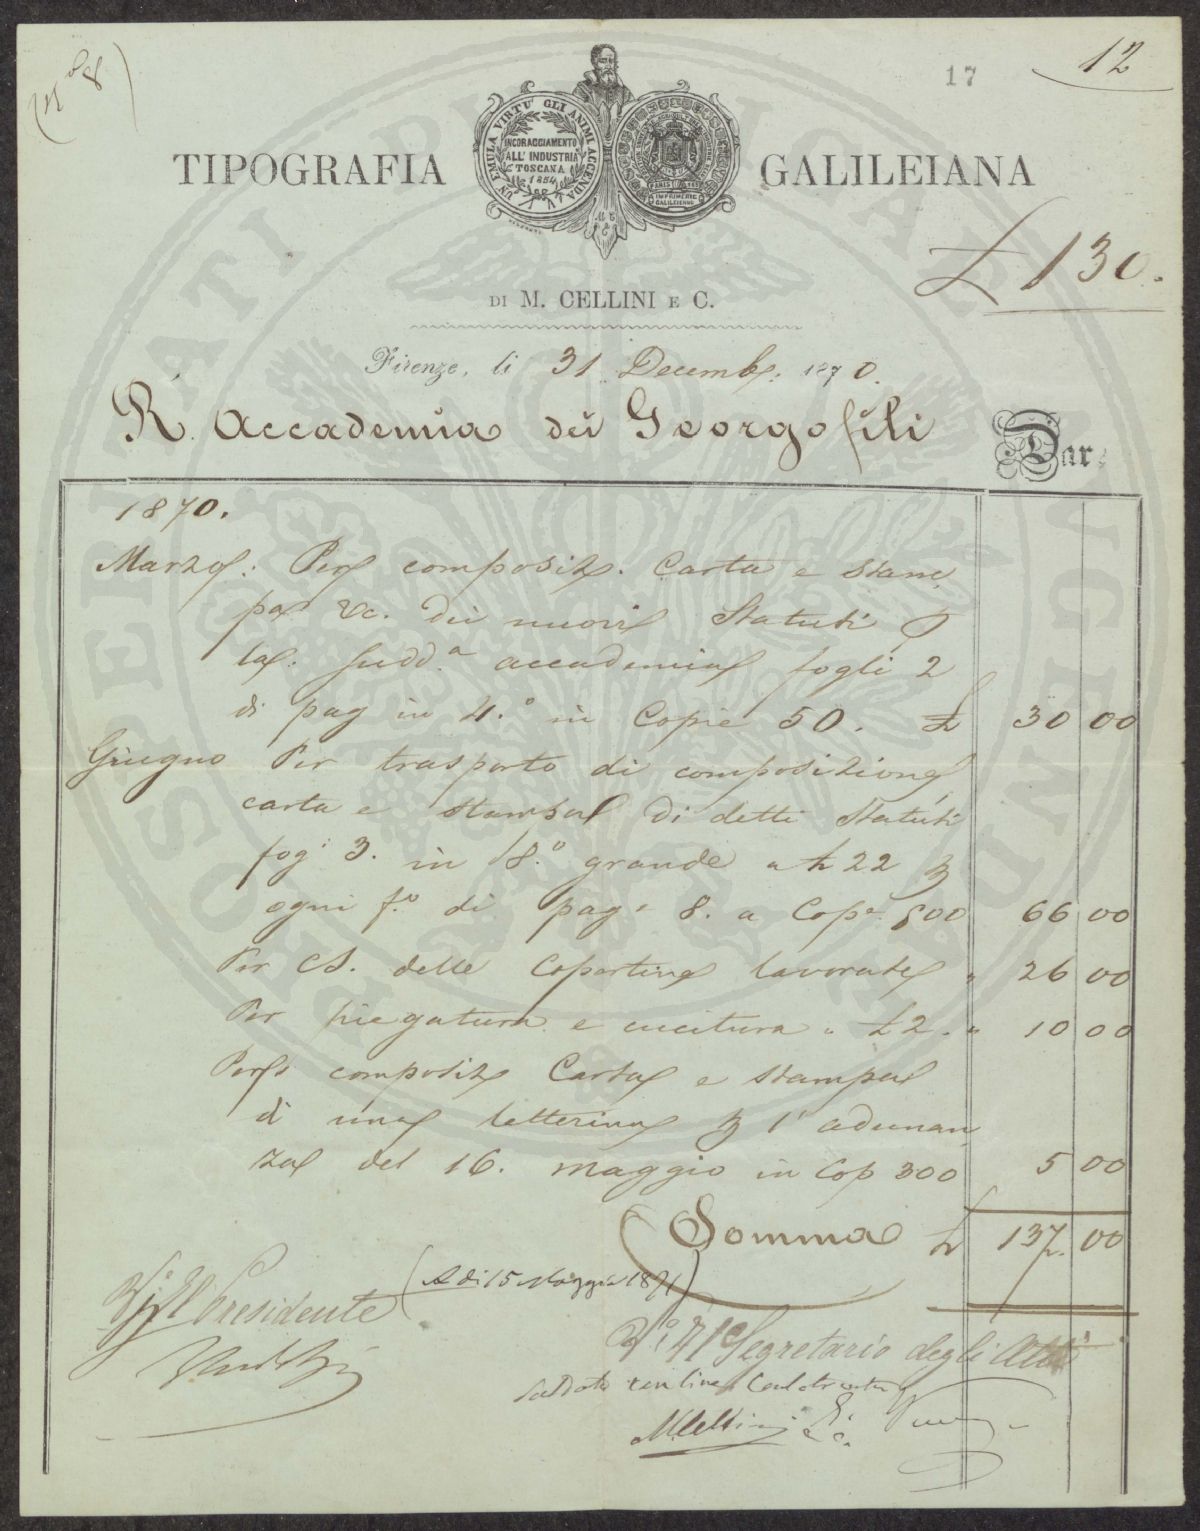 (N° 8)
17
12
UN EMULA VIRTU' GLI ANIMI ACCENDA
INCORAGGIAMENTO
ALL' INDUSTRIA
TOSCANA
1854
IMPRIMERIE
GALILEIENNE
TIPOGRAFIA GALILEIANA
£ 130.
DI M. CELLINI E C.
Firenze, li 31 Decembe: 1870.
R. Accademia dei Georgofili
Dare
1870.
Marzo: Per composiz. Carta e stam
pa &c. dei nuovi Statuti
la Sudd.a accademia fogli 2
di pag in 4.° in Copie 50. £ 30 00
Giugno Per trasporto di composizione
carta e stampa di detti Statuti
fog.i 3. in 18.° grande a £ 22
ogni f.o di pag.e 8. a Cop.e 500 66 00
Per CS. delle Copertine lavorate " 26 00
Per piegatura e cucitura " £ 2. " 10 00
Per composiz Carta e stampa
di una letterina l' adunan
za del 16. Maggio in Cop 300 5 00
Somma £ 137. 00
(A di 15 Maggio 1871)
V° Il Presidente
V° Il Segretario degli Atti
Saldato
MCellini e C.
PROSPERITATI PUBLICAE AUGENDAE